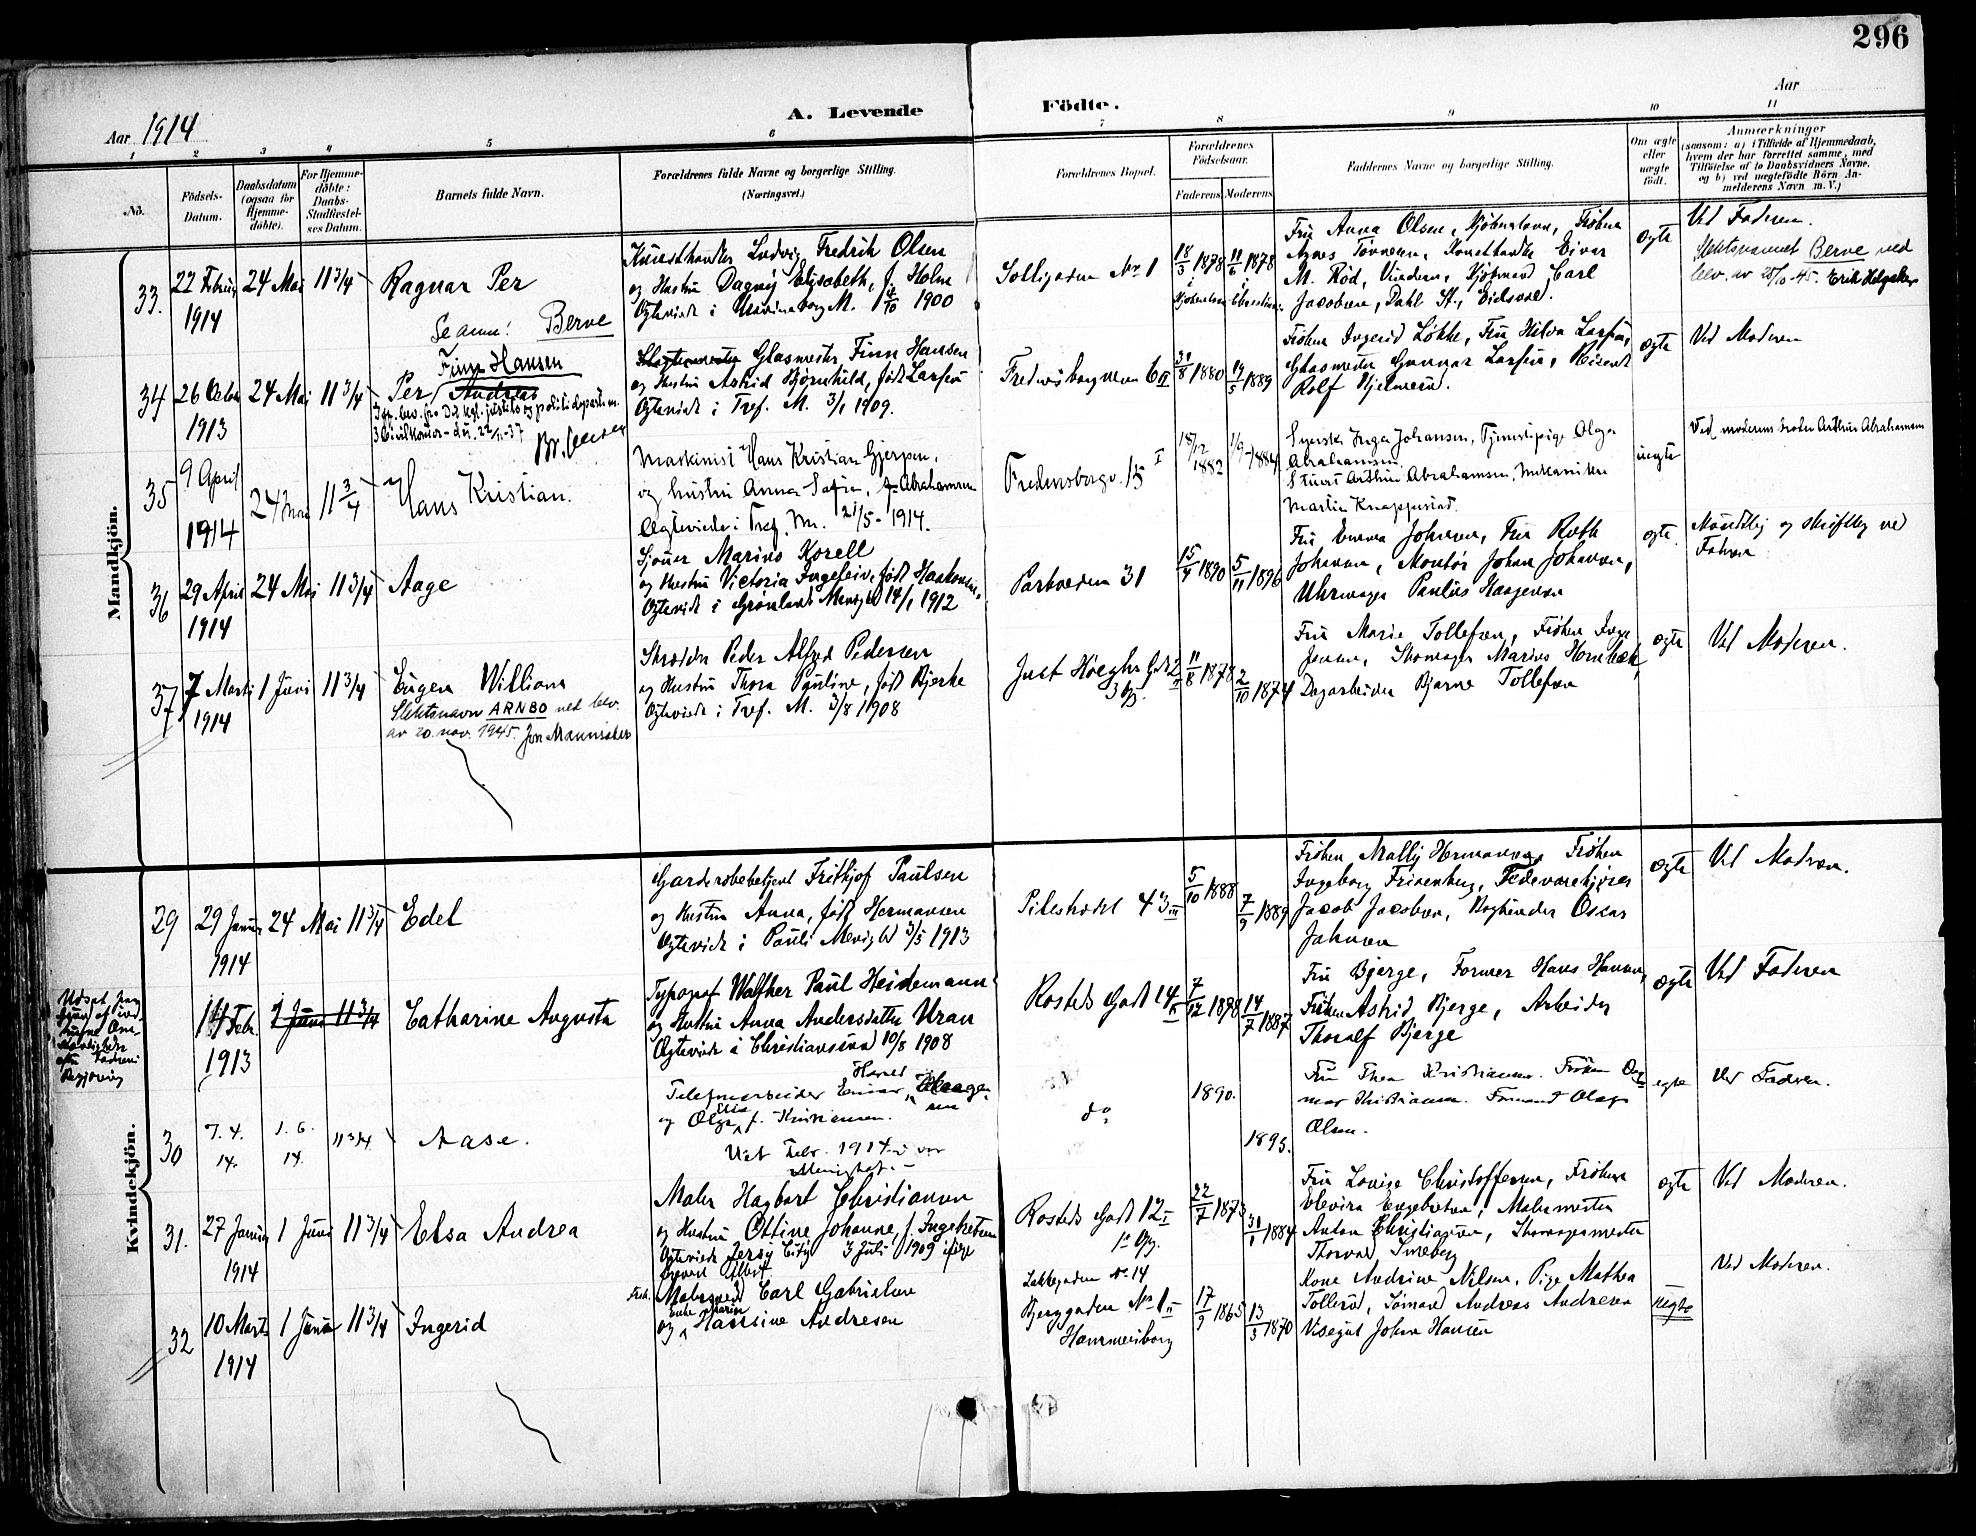 296
Aar 1914
A. Levende Födte.
Aar
1 2 3 4 5 6 7 8 9 10 11
No.
Födsels-
Datum.
Daabsdatum
(ogsaa for
Hjemme-
døbte).
For Hjemme-
døbte:
Daabs-
Stadfæstel-
ses Datum.
Barnets fulde Navn.
Forældrenes fulde Navne og borgerlige Stilling.
(Næringsvei.)
Forældrenes Bopæl.
Forældrenes
Fødselsaar.
Faderens
Moderens
Faddernes Navne og borgerlige Stilling.
Om ægte
eller
uægte
født.
Anmærkninger
(saasom: a) i Tilfælde af Hjemmedaab,
hvem der har forrettet samme, med
Tilføielse af to Daabsvidners Navne,
og b) ved uægtefødte Börn An-
melderens Navn m. V.)
Mandkjön.
33.
22 Februar
1914
24 Mai
11 3/4
Ragnar Per
Se anm! Berve
Kunsthandler Ludvig Fredrik Olsen
og Hustru Dagny Elisabeth, f. Holm
Ægteviede i M. 4/10 1900
Solligaden No 1
18/3 1878
11/6 1878
i
Fru Anna Olsen, Kjøbenhavn, Frøken
Agnes Kunsthandler Eivar
M. Rød, Kjøbmand Carl
Jacobsen, Dahl St., Eidsvold.
ægte
Ved Faderen.
Slektsnavnet Berve ved
bev. av 25/10-45.
34
26 Octbr
1913
24 Mai
11 3/4
Finn Hansen
Per Andreas
Glasmester Finn Hansen
og Hustru Astrid Bjørnhild, født Larsen
Ægteviede i Tref. M. 3/1 1909.
Fredensborgveien 6 II
31/8 1880
19/5 1889
Frøken Ingerid Løkke, Fru Hilda Larsen,
Glasmester Gunnar Larsen,
Rolf Hjelmerud.
ægte
Ved Moderen
35
9 April
1914
24 Mai
11 3/4
Hans Kristian.
Maskinist Hans Kristian Gjerpen,
og hustru Anna Sofie, f. Abrahamsen
Ægteviede i Tref. M. 21/5 - 1914.
Fredensborgv. 15 I
18/12 1882
1/9 - 1884
Syerske Inga Johansen, Tjenestepige Olga
Abrahamsen
Stuert Arthur Abrahamsen, Mekaniker
Martin Knapperud.
uægte
Ved moderens broder Arthur Abrahamsen
36
29 April
1914
24 Mai
11 3/4
Aage
Sjauer Marius Korell
og Hustru Victoria Ingeleiv, født Haakonsen,
Ægteviede i Grønlands Menighed 14/1 1912
Parkveien 31
15/4 1890
5/11 1896
Fru Emma Johnsen, Fru Ruth
Johansen, Montør Johan Johansen,
Uhrmager Paulus Haagensen
ægte
Mundtlig og skriftlig ved
Faderen
37
7 Marts
1914
1 Juni
11 3/4
Eugen William
Slektsnavn ARNBO ved bev.
av 20. nov. 1945.
Skrædder Peder Alfred Pedersen
og Hustru Thora Pauline, født Bjerke
Ægteviede i Tref. M. 3/8 1908
Just Høeghs Gd 2 II
3 Opg.
11/8 1878
2/10 1874
Fru Marie Tollefsen, Frøken Inga
Jensen, Skomager Marius Hornbæk,
Dagarbeider Bjarne Tollefsen
ægte
Ved Moderen.
Kvindekjön.
29
29 Januar
1914
24 Mai
11 3/4
Edel
Garderobebetjent Frithjof Paulsen
og Hustru Anna, født Hermansen
Ægteviede i Pauli Menighed 3/5 1913
Pilestrædet 43 III
5/10 1888
7/9 1889
Frøken Mally Hermansen, Frøken
Ingeborg Frisenberg,
Jacob Jacobsen, Bogbinder Oscar
Johnsen
ægte
Ved Moderen.
14 Febr.
1913
1 Juni
11 3/4
Catharine Augusta
Typograf Walther Paul Heidemann
og Hustru Anna Andersdatter Uran
Ægteviede i Christianssand 10/8 1908
Rosteds Gade 14
7/12 1878
14/7 1887
Fru Bjerge, Former Hans Hansen,
Frøken Astrid Bjerge, Arbeider
Thoralf Bjerge
ægte
Ved Faderen
30
7. 4.
14.
1. 6.
14.
11 3/4
Aase.
Telefonarbeider Einar Haagen-
sen
og Olga f. Kristiansen.
Viet Febr. 1914 i vor
Menighet.
do
1890.
1893.
Fru Thea Kristiansen. Frøken Dag-
mar Kristiansen. Olaf
Olsen.
ægte
Ved Faderen.
31.
27 Januar
1914
1 Juni
11 3/4
Elsa Andrea
Maler Hagbart Christiansen
og Hustru Ottine Johanne, f. Ingebretsen
Ægteviede Jersey City 3 Juli 1909 ifølge
Rosteds Gade 12 I
1ste Opg.
22/7 1873
31/1 1884
Fru Louise Christoffersen, Frøken
Elevira Engebretsen, Malermester
Anton Christiansen, Skomagermester
Thorvald Smeberg
ægte
Ved Moderen.
32
10 Marts
1914
1 Juni
11 3/4
Ingerid
Malersvend Carl Gabrielsen
og Enke Marie Hansine Andresen
Lakkegaden No. 14
Berggaden No 1 II
Hammersborg
17/9 1865
13/3 1870
Kone Andrine Nilsen, Pige Mathea
Tollerud, Sømand Andreas Andresen
Visergut Johan Hansen
uægte
Ved Moderen.